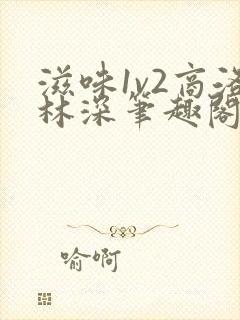 滋味1v2高洛
林深笔趣阁
喻啊